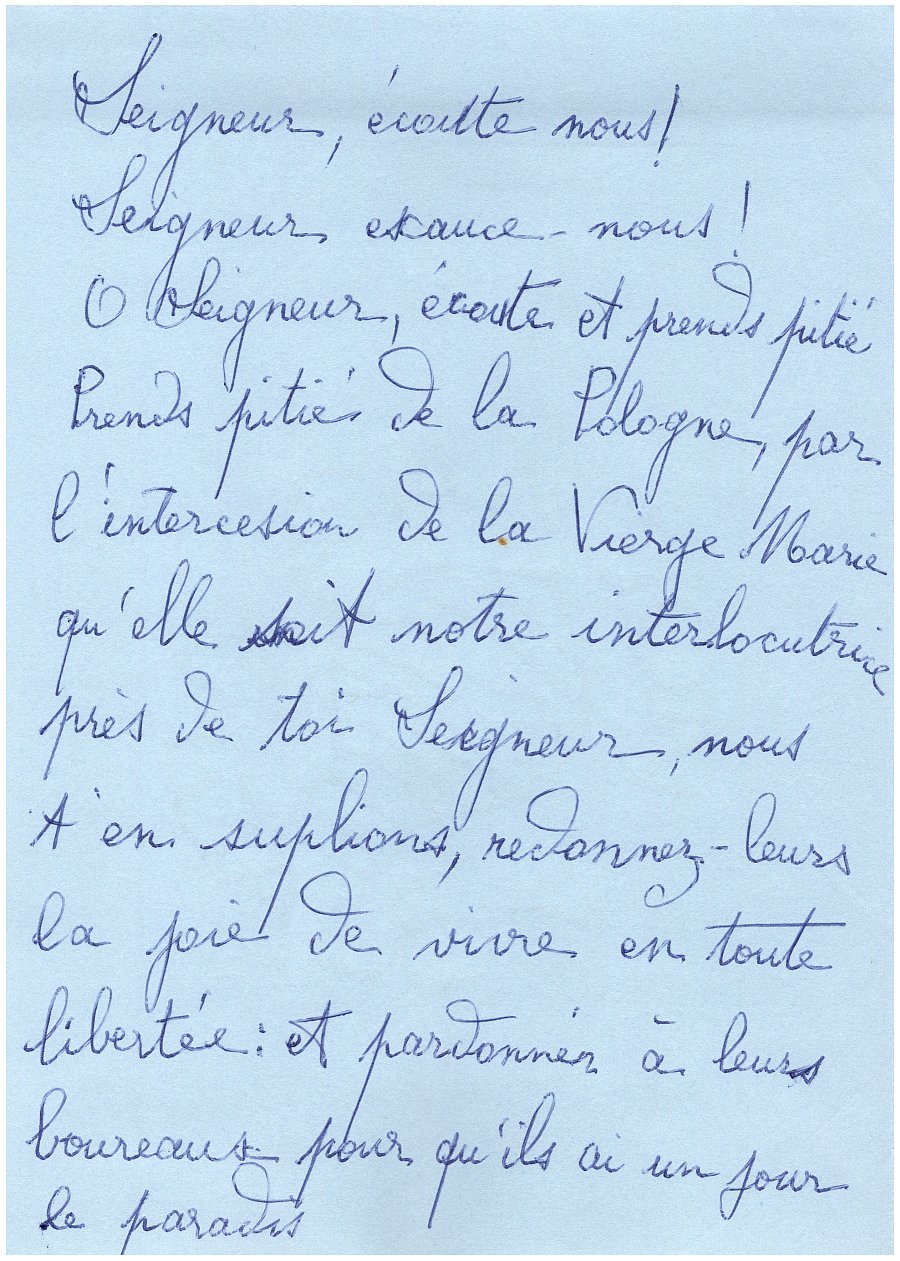 Seigneur, écoute nous!
Seigneur exauce-nous!
O Seigneur, écoute et prends pitié
Prends pitié de la Pologne, par
l'intercesion de la Vierge Marie
qu'elle soit notre interlocutrice
près de toi Seigneur, nous
t'en suplions, redonnez-leurs
la joie de vivre en toute
libertée: et pardonner à leurs
boureaux pour qu'ils ai un jour
le paradis